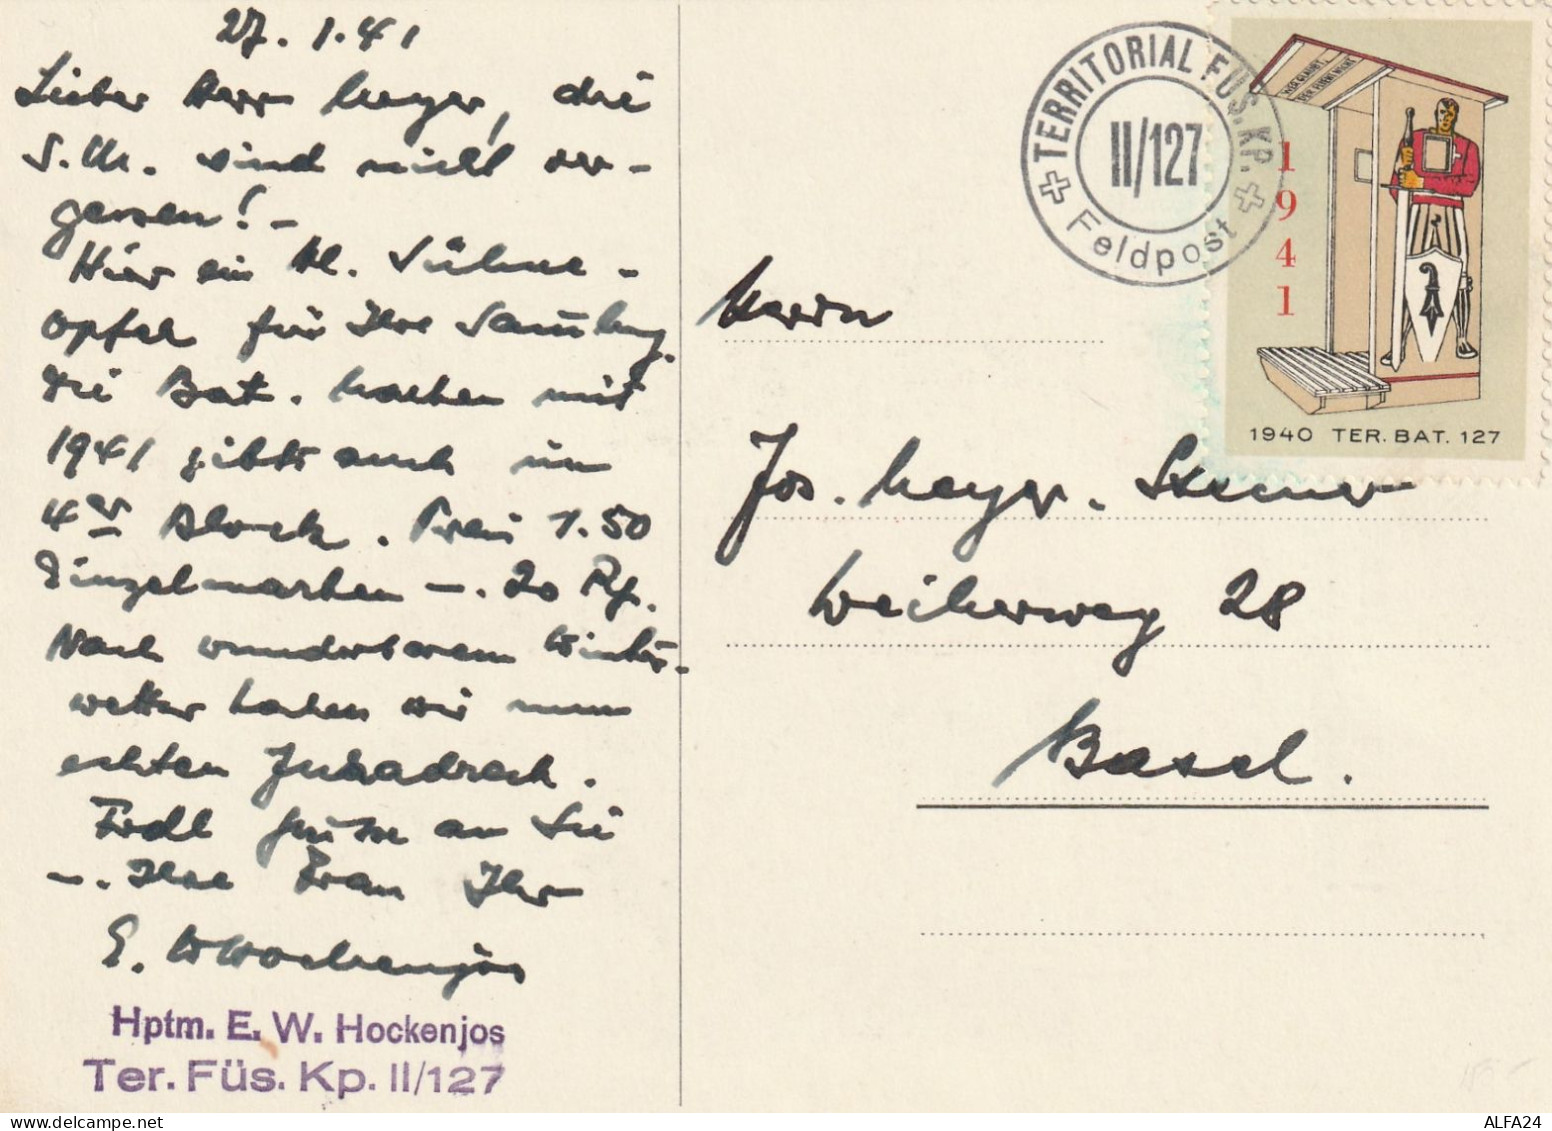 27. 1. 41
Lieber Herr Meyer, die
S.M. sind nicht ver-
gessen! -
Hier ein kl. Sühne-
opfer für Ihre Sammlung.
Die Bat. Marken mit
1941 gibts auch im
4er Block. Preis 1.50
Einzelmarken -.20 Rp.
Nach wunderbarem Winter-
wetter haben wir nun
echten Juradreck.
Frdl Grüsse an Sie
-. Ihre Frau Ihr
E. W. Hockenjos
Hptm. E. W. Hockenjos
Ter. Füs. Kp. II/127
TERRITORIAL FÜS. KP.
II/127
Feldpost
WER GLAUBT,
DER FLIEHT NICHT
1941
1940 TER. BAT. 127
Herrn
Jos. Meyer-Steiner
Weiherweg 28
Basel.
ALFA24